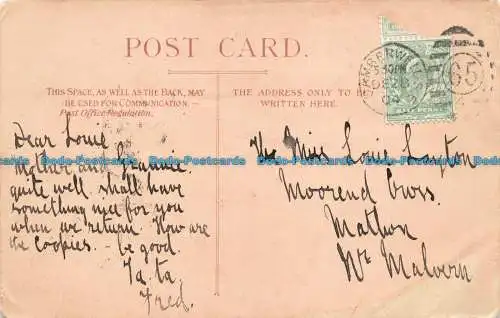 POST CARD.
THIS SPACE, AS WELL AS THE BACK, MAY
BE USED FOR COMMUNICATION.
Post Office Regulation.
THE ADDRESS ONLY TO BE
WRITTEN HERE.
65
HALFPENNY
Dear Louie
Mother and Grannie
quite well shall have
something nice for you
when we return. How are
the Coopies. be good.
Ta. ta.
Fred.
The Miss Louie Layton
Moorend Cross.
Mathon
Nr. Malvern
Bodo-Postcards Bodo-Postcards Bodo-Postcards Bodo-Postcards